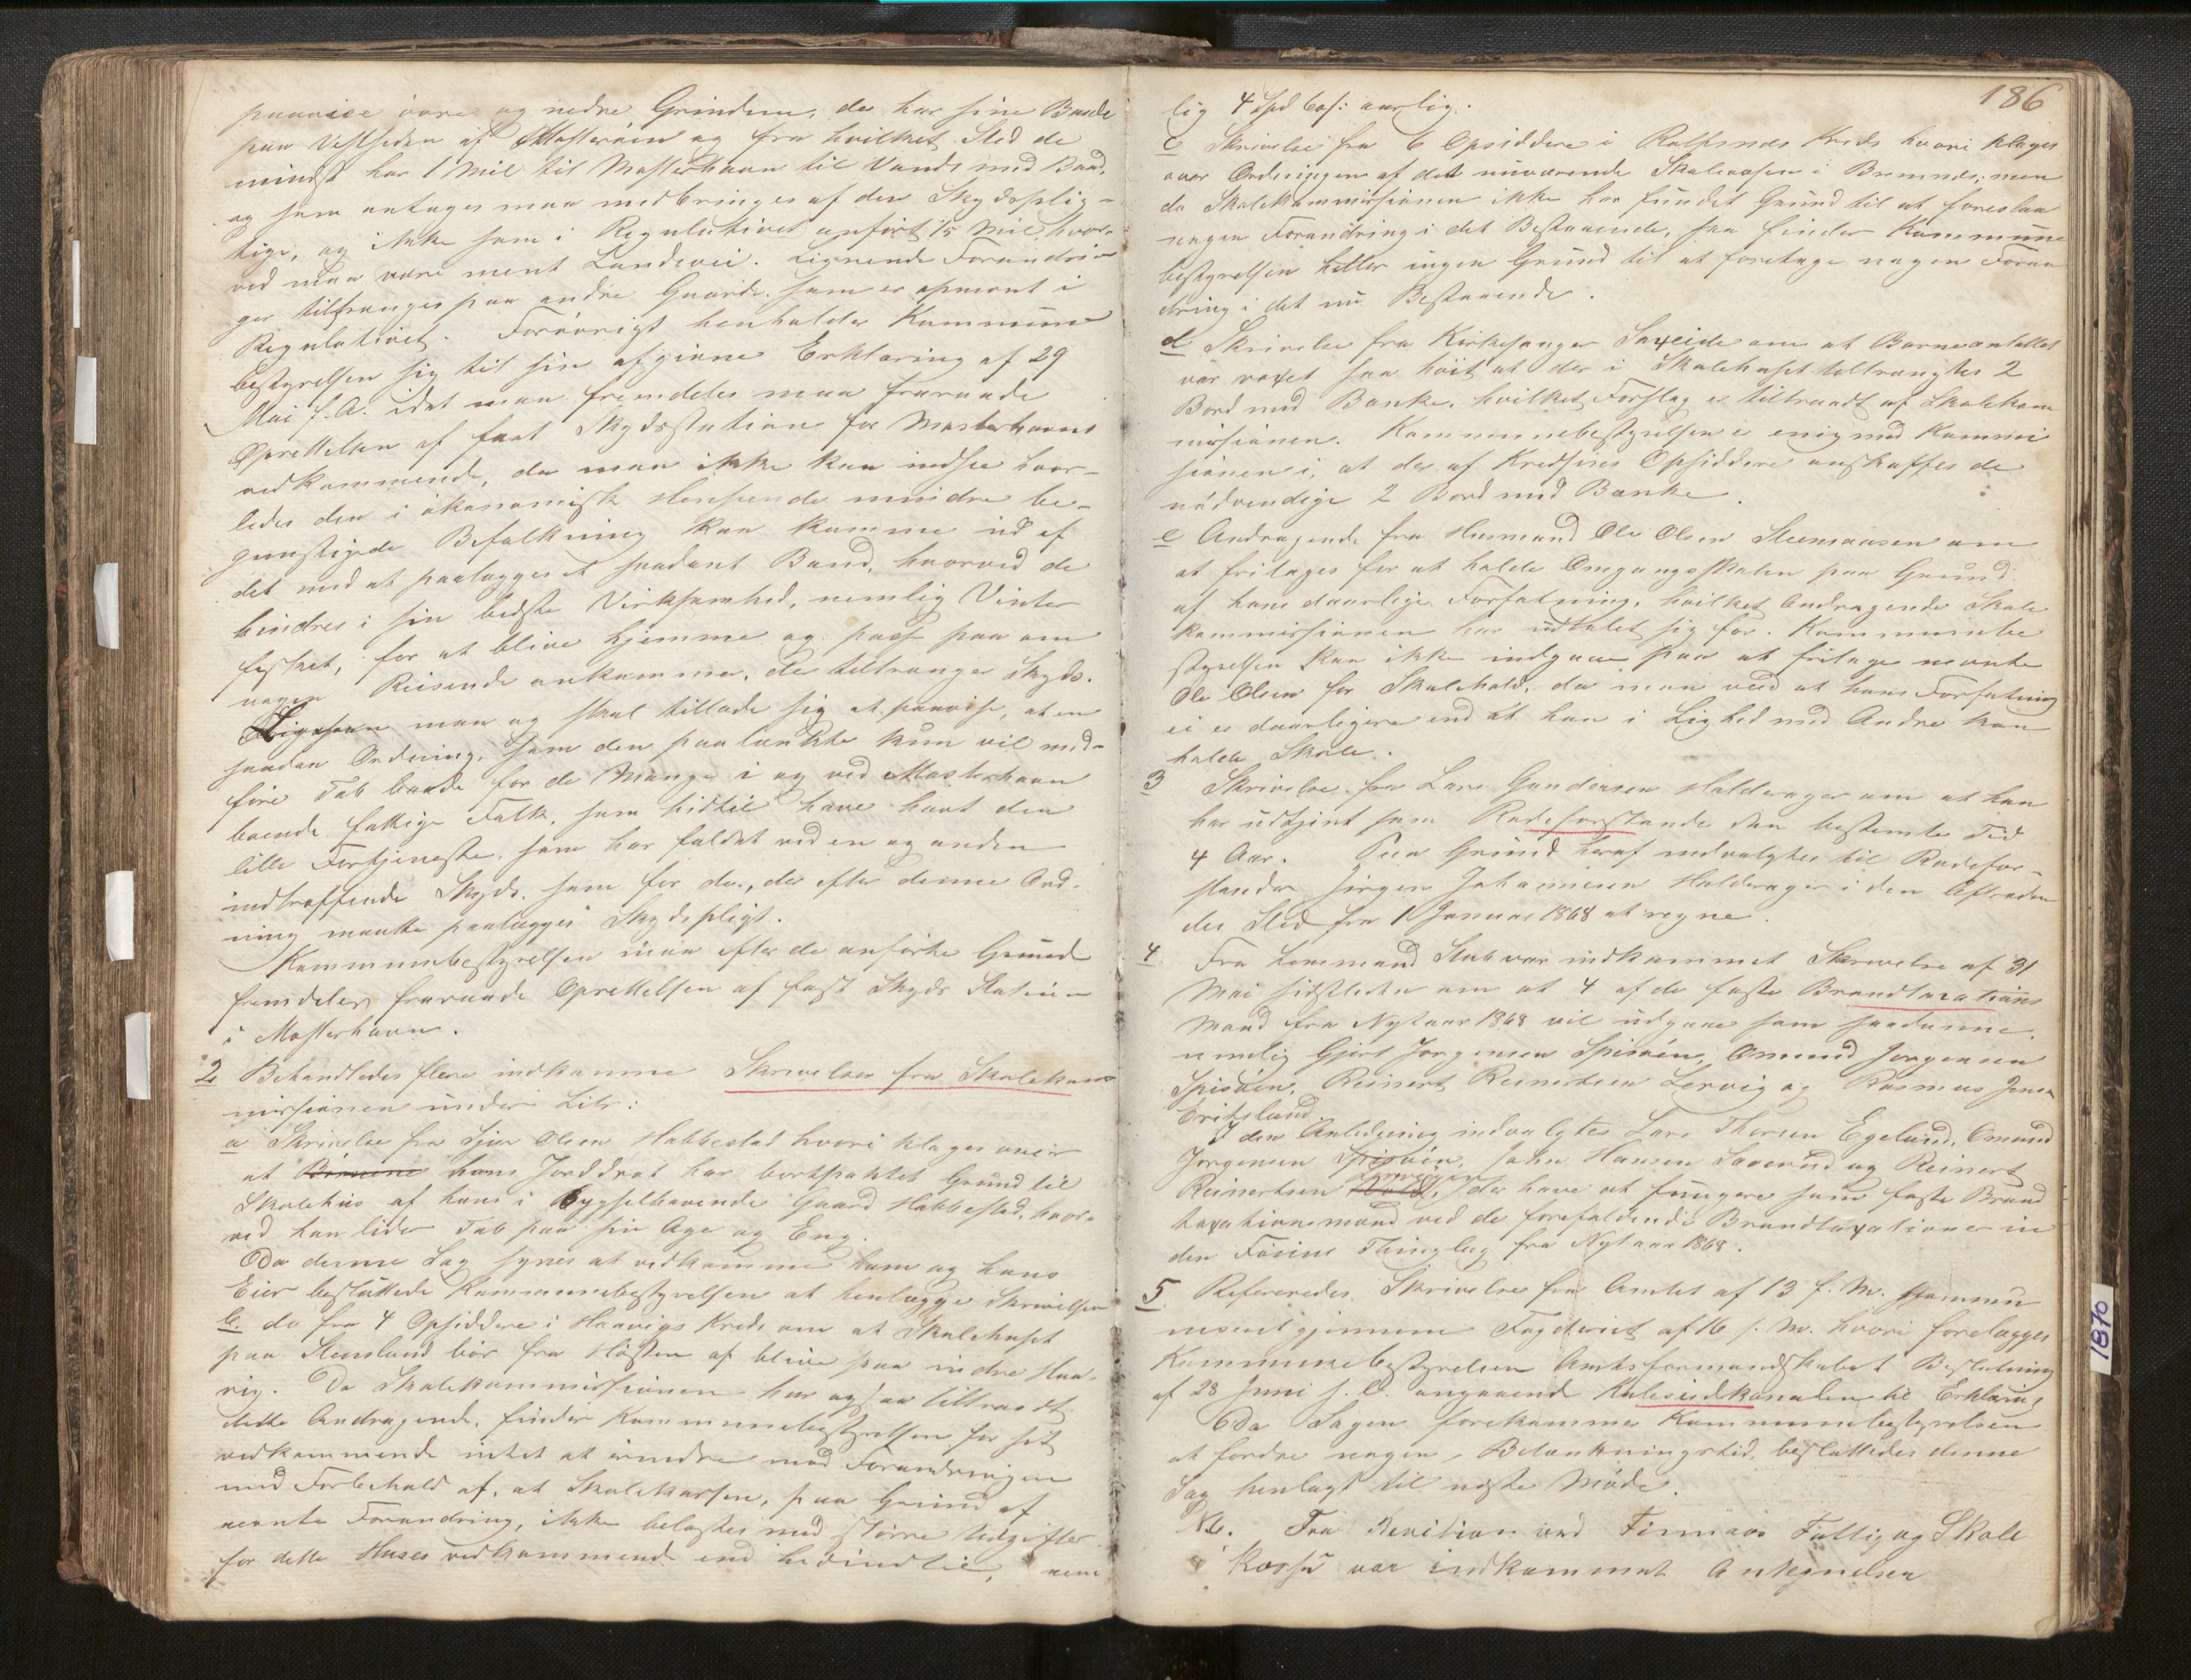 paavise øvre og nedre Grinden, der har sine Baade
paa Vestsiden af Mosterøen og fra hvilket Sted de
mindst har 1 Mil til Mosterhavn til Vands med Baad,
og som antages maa medbringes af den Skydsplig-
tige, og ikke som i Regulativet anført 1/5 Mil, hvor-
ved maa være ment Landevei. Lignende Forandrin
ger tiltrænges paa andre Gaarde som er opnævnt i
Regulativet. Forøvrigt henholder Kommune
bestyrelsen sig til sin afgivne Erklæring af 29
Mai f. A. idet man fremdeles maa fraraade
Oprettelsen af fast Skydsstation for Mosterhavns
vedkommende, da man ikke kan indsee hvor-
ledes den i økonomisk Henseende mindre be-
gunstigede Befolkning kan komme ud af
det med at paalægges et saadant Baand, hvorved de
hindres i sin bedste Virksomhed, nemlig Vinter
fisket, for at blive hjemme og passe paa om
nogen Reisende ankommer, der tiltrænger Skyds.
Ligesom man og skal tillade sig at paavise, at en
saadan Ordning, som den paatænkte kun vil med-
føre Tab baade for de Mange i og ved Mosterhavn
boende fattige Folk, som hidtil have havt den
lille Fortjeneste, som har faldet ved en og anden
indtræffende Skyds, som for dem, der efter denne Ord-
ning maatte paalægges Skydspligt.
Kommunebestyrelsen maa efter de anførte Grunde
fremdeles fraraade Oprettelsen af fast Skyds Station
i Mosterhavn.
2 Behandledes flere indkomne Skrivelser fra Skolekom
missionen under Litr:
a Skrivelse fra Olsen Habbestad hvori klages over
at hans Jorddrot har bortfæstet Grund til
Skolehus af hans i Bygselhavende Gaard Habbestad, hvor-
ved han lider Tab paa sin Ager og Eng.
Da denne Sag synes at vedkomme ham og hans
Eier besluttede Kommunebestyrelsen at henlægge Skrivelsen
b. do fra 4 Opsiddere i Haavigs Kreds om at Skolehuset
paa Stensland bør fra Høsten af blive paa indre Haa-
vig. Da Skolekommissionen har ogsaa tiltraadt
dette Andragende, finder Kommunebestyrelsen for sit
vedkommende intet at erindre mod Forandringen
med Forbehold af, at Skolekassen, paa Grund af
nævnte Forandring, ikke belastes med større Udgifter
for dette Huses vedkommende end hidindtil, nem
186
lig 4 Spd aarlig.
c Skrivelse fra 6 Opsiddere i Kreds hvori klages
over Ordningen af det nuværende Skolevæsen i Bremnes; men
da Skolekommissionen ikke har fundet Grund til at foreslaa
nogen Forandring i det Bestaaende, saa finder Kommune
bestyrelsen heller ingen Grund til at foretage nogen Foran
dring i det nu Bestaaende.
d Skrivelse fra Kirkesanger Saxeide om at Barneantallet
var voxet saa høit at der i Skolehuset tiltrængtes 2
Bord med Bænke, hvilket Forslag er tiltraadt af Skolekom
missionen. Kommunebestyrelsen er enig med Kommi
sionen i, at der af Kredsens Opsiddere anskaffes de
nødvendige 2 Bord med Bænke.
e Andragende fra Husmand Ole Olsen om
at fritages for at holde Omgangsskolen paa Grund
af hans daarlige Forfatning, hvilket Andragende Skole
kommissionen har udtalet sig for. Kommunebe
styrelsen kan ikke indgaae paa at fritage nævnte
Ole Olsen for Skolehold, da man veed at hans Forfatning
ei er daarligere end at han i Lighed med Andre kan
holde Skole.
3 Skrivelse fra Lars Gundersen Halderager om at han
har udtjent som Rodeforstander den bestemte Tid
4 Aar. Paa Grund heraf udvalgtes til Rodefor-
stander Jørgen Johannesen Halderager i den Aftræden
des Sted fra 1 Januar 1868 at regne.
4 Fra Lensmand Stub var indkommet Skrivelse af 31
Mai sidstleden om at 4 af de faste Brandtaxations
Mænd fra Nytaar 1868 vil udgaae som saadanne
nemlig Gjert Jørgensen Spisøen, Omund Jørgensen
Spisøen, Reinert Reinertsen Lervig og Rasmus Jensen
Eritsland.
I den Anledning indvalgtes Lars Thorsen Egeland, Omund
Jørgensen Spisøen, John Hansen og Reinert
Reinertsen der have at fungere som faste Brand
taxationsmænd ved de forefaldende Brandtaxationer in
den Føiens Thinglag fra Nytaar 1868.
5 Refereredes Skrivelse fra Amtet af 13 f. M. kommu
niseret gjennem Fogderiet af 16 s. M. hvori forelægges
Kommunebestyrelsen Amtsformandskabets Beslutning
af 28 Juni f. A. angaaende til Erklæring
Da Sagen forekommer Kommunebestyrelsen
at fordre nogen Betænkningstid, besluttedes denne
Sag henlagt til næste Møde.
No 6. Fra Revision ved Finnaas Fattig og Skole
Kasse var indkommet Antegnelser
1870